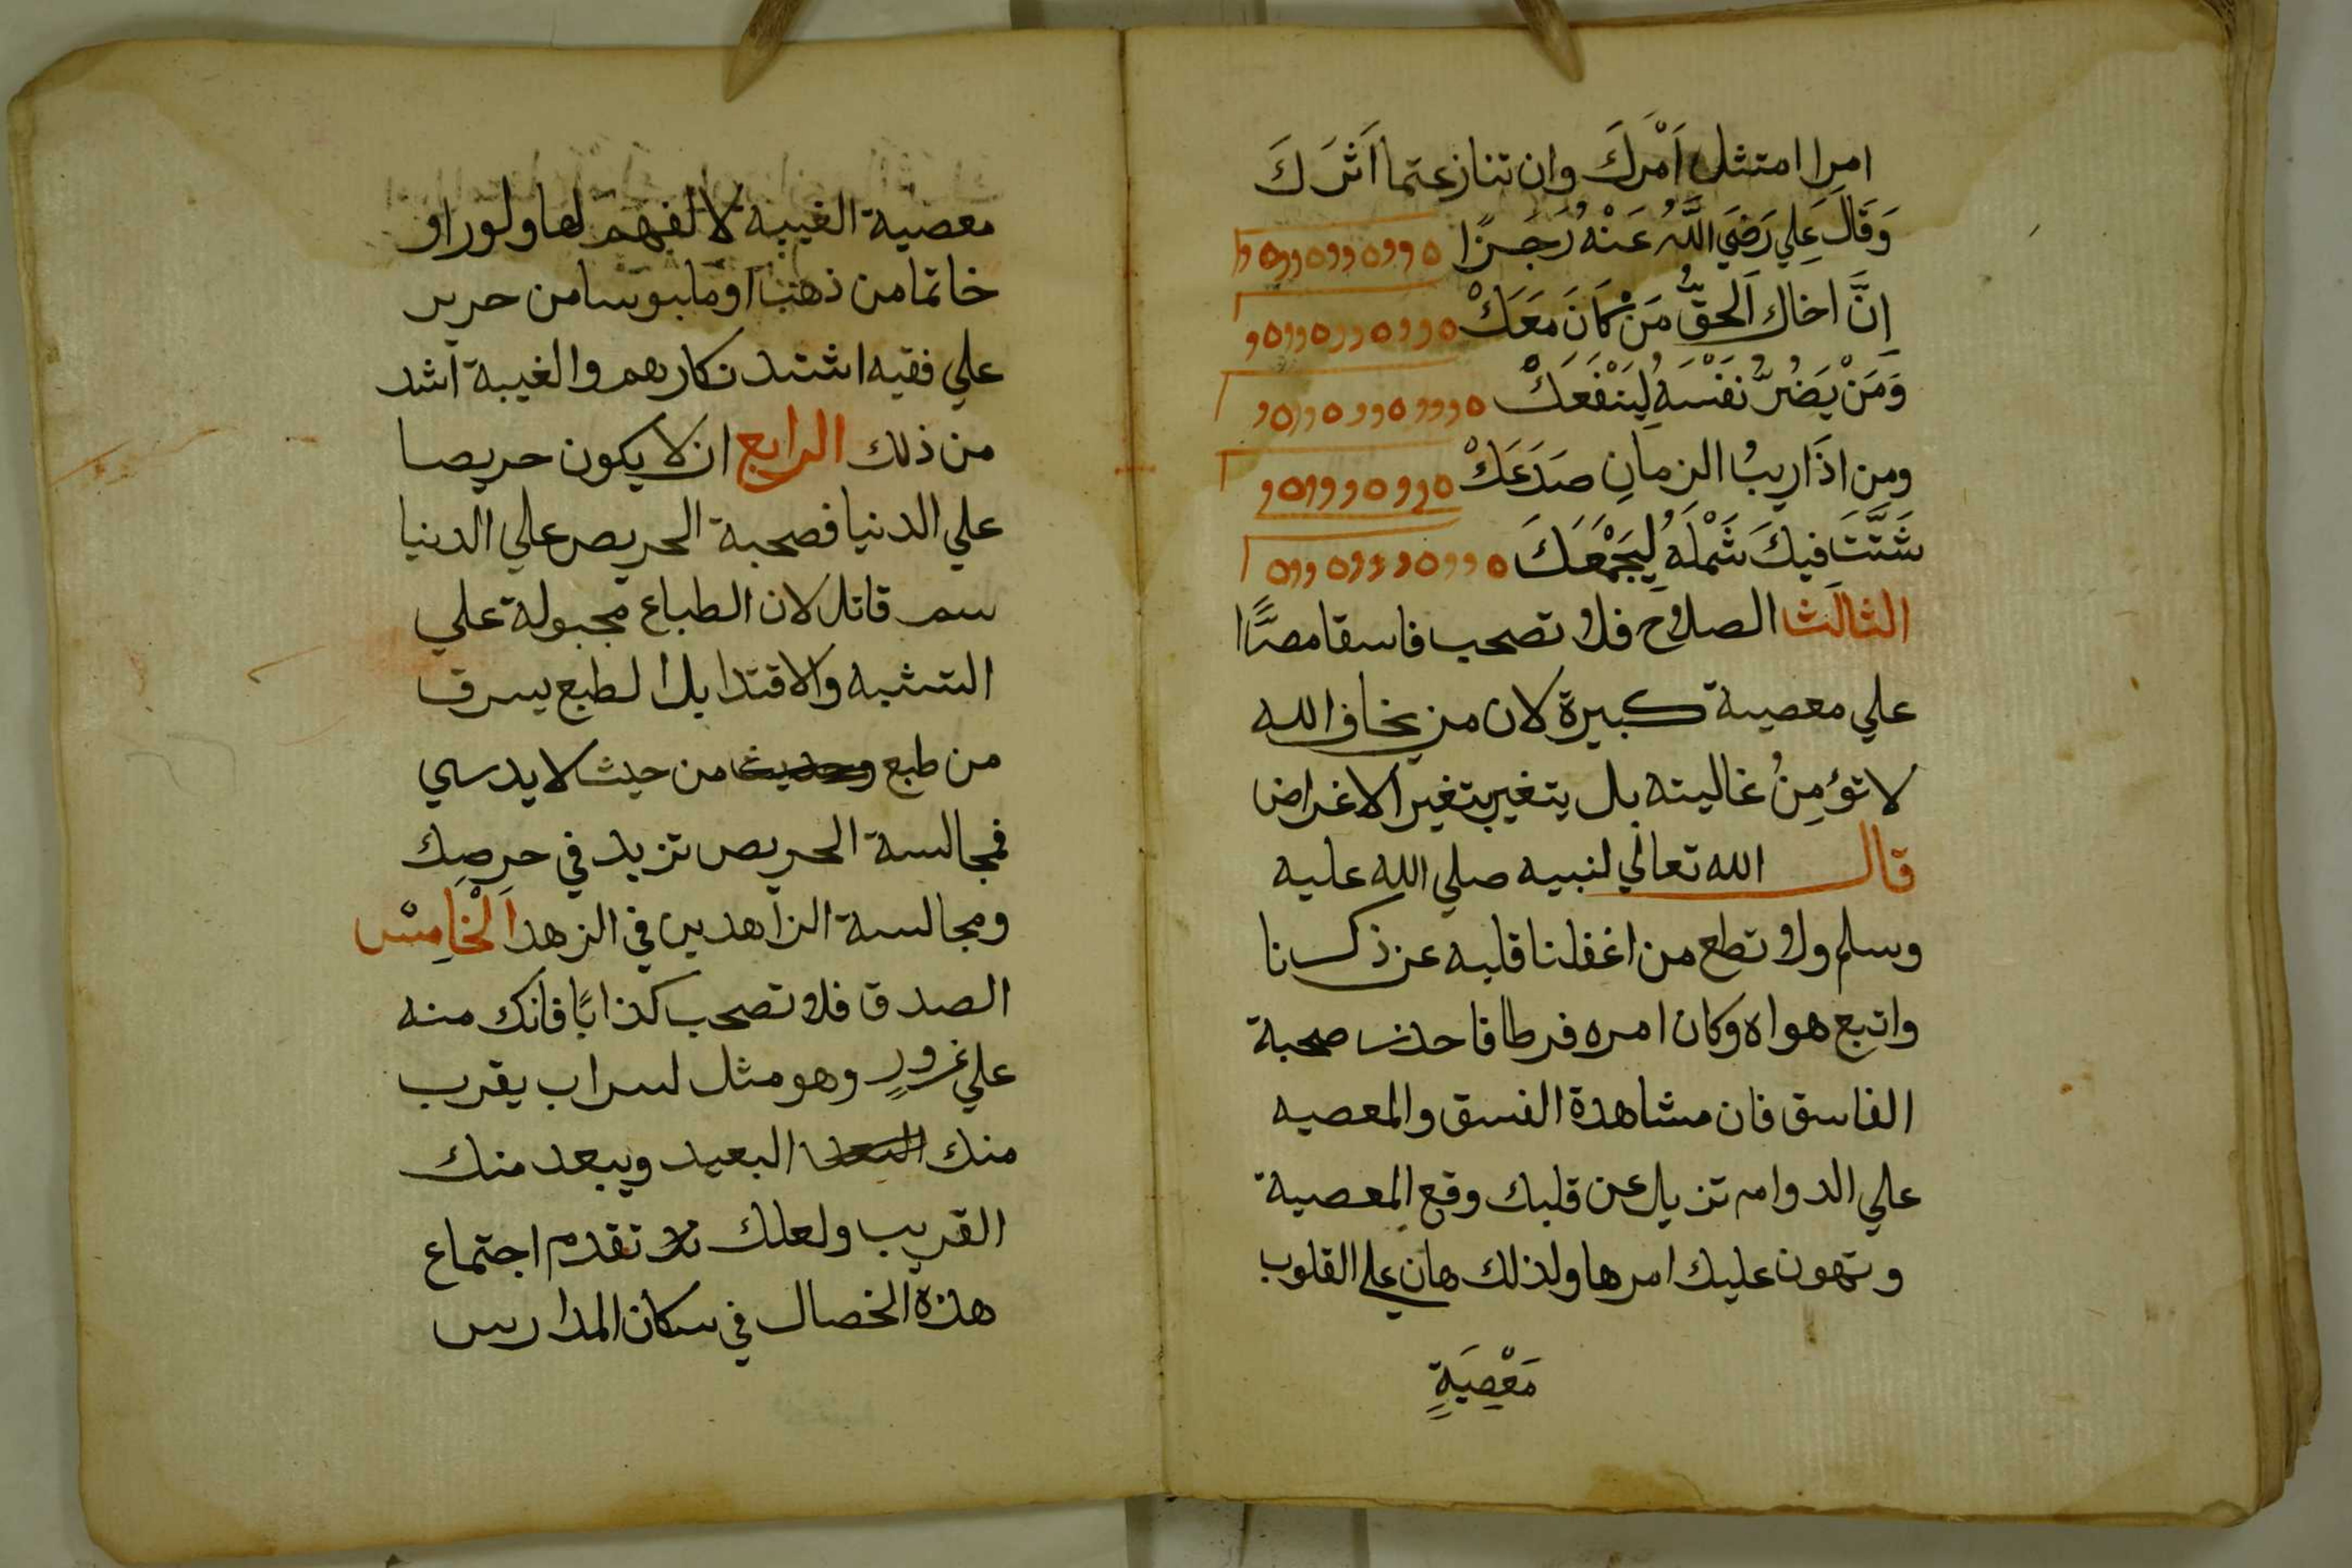 امرا امتثل اَمْرَكَ وان تنازعتما اَثَرَكَ
وَقَالَ عَلِي رَضِيَ اللَّهُ عَنْهُ رَجَزًا
اِنَّ اخاك اَلحقُّ مَنْ كَانَ مَعَكْ
وَمَنْ يَضُرُّ نَفْسَهُ لِيَنْفَعَكْ
ومن اذَا ريبُ الزمانِ صَدَعَكْ
شَتَّتَ فيكَ شَمْلَهُ لِيَجْمَعَكَ
الثالث الصلاح فلا تصحب فاسقا مصرًّا
علي معصية كبيرة لان من يخاف الله
لا تؤمِنُ غاليته بل يتغير بتغير الاغراض
قال الله تعالي لنبيه صلي الله عليه
وسلم ولا تطع من اغفلنا قلبه عن ذكرنا
واتبع هواه وكان امره فرطا فاحذر صحبة
الفاسق فان مشاهدة الفسق والمعصيه
علي الدوام تزيل عن قلبك وقع المعصية
وتهون عليك امرها ولذلك هان علي القلوب
مَعْصِيَةِ
معصية الغيبة لا لفهم لها ولو راو
خاتما من ذهب او ملبوسا من حرير
علي فقيه اشتد نكارهم والغيبة اشد
من ذلك الرابع ان لا يكون حريصا
علي الدنيا فصحبة الحريص علي الدنيا
سم قاتل لان الطباع مجبولة علي
التشبه والاقتدا بل الطبع يسرق
من طبع من حيث لا يدري
فمجالسة الحريص تزيد في حرصك
ومجالسة الزاهدين في الزهد اَلْخَامِسْ
الصدق فلا تصحب كذابًا فانك منه
علي غرورٍ وهو مثل لسراب يقرب
منك البعيد ويبعد منك
القريب ولعلك تقدم اجتماع
هذه الخصال في سكان المدارس